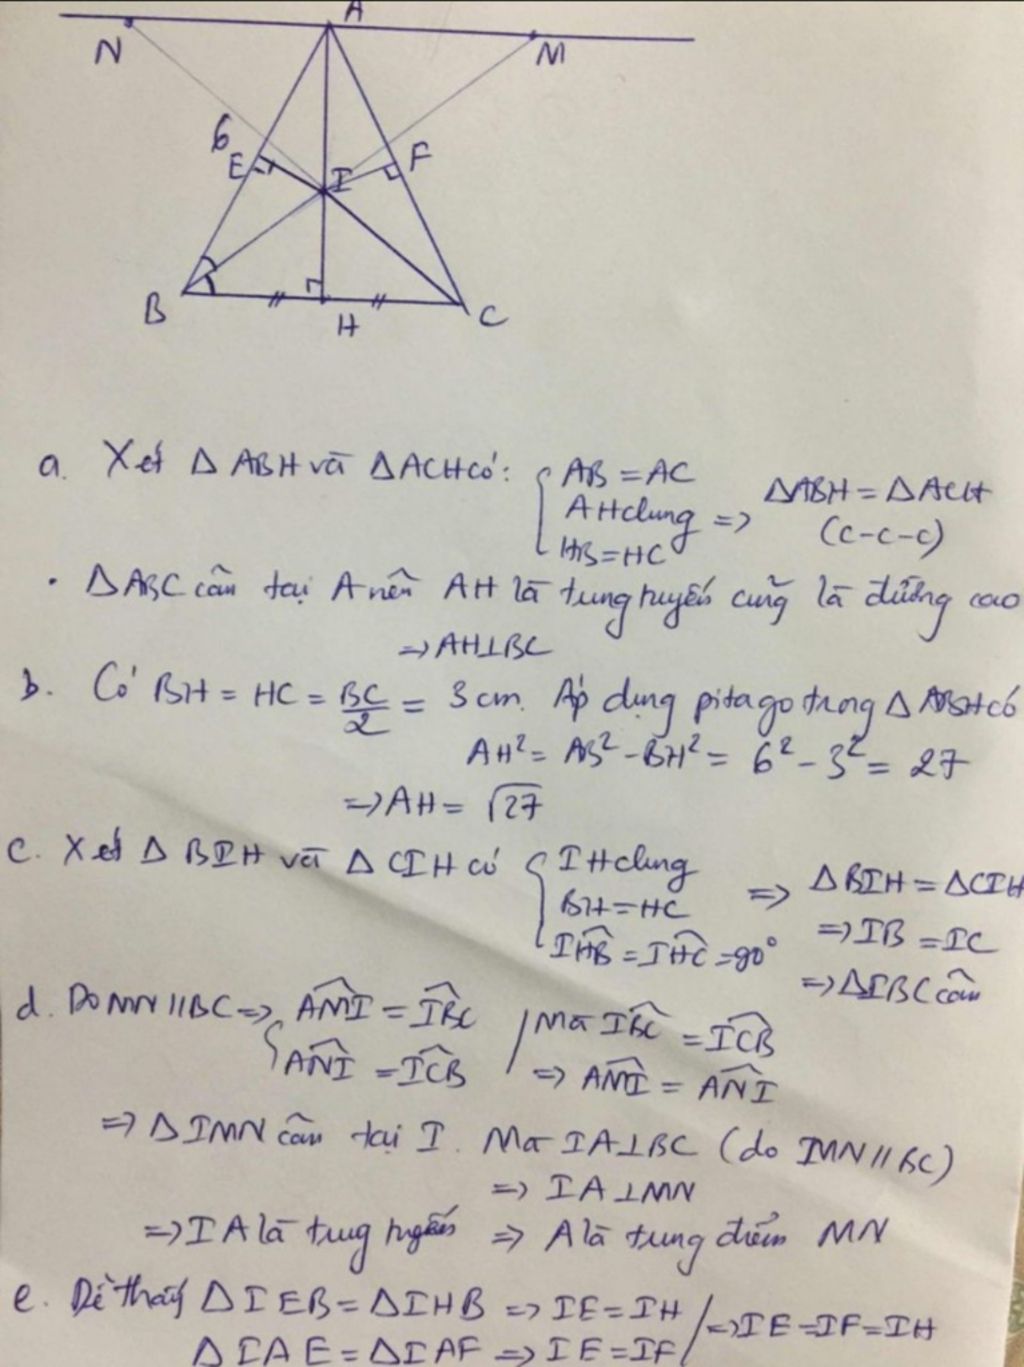 A
N
M
6
E
F
I
B
H
C
a. Xét Δ ABH và ΔACH có: { AB = AC
AH chung => ΔABH = ΔACH
HB = HC (c-c-c)
• ΔABC cân tại A nên AH là trung tuyến cũng là đường cao
=> AH⊥BC
b. Có BH = HC = BC/2 = 3 cm. Áp dụng pitago trong Δ ABH có
AH² = AB² - BH² = 6² - 3² = 27
=> AH = √27
c. Xét Δ BIH và Δ CIH có { IH chung
BH = HC => ΔBIH = ΔCIH
IHB = IHC = 90° => IB = IC
=> ΔIBC cân
d. Do MN // BC => { AMI = IBC / Mà IBC = ICB
ANI = ICB / => AMI = ANI
=> ΔIMN cân tại I. Mà IA⊥BC (do MN // BC)
=> IA⊥MN
=> IA là trung tuyến => A là trung điểm MN
e. Dễ thấy ΔIEB = ΔIHB => IE = IH / => IE = IF = IH
ΔIAE = ΔIAF => IE = IF /